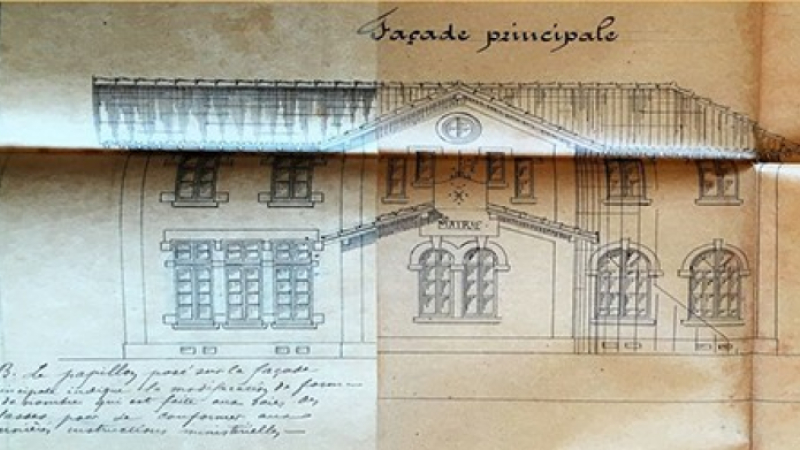 Façade principale
MAIRIE
B. Le papillon posé sur la façade
incipale indique la modification de forme
de nombre qui est faite aux baies des
lasses pour se conformer aux
ernières instructions ministérielles